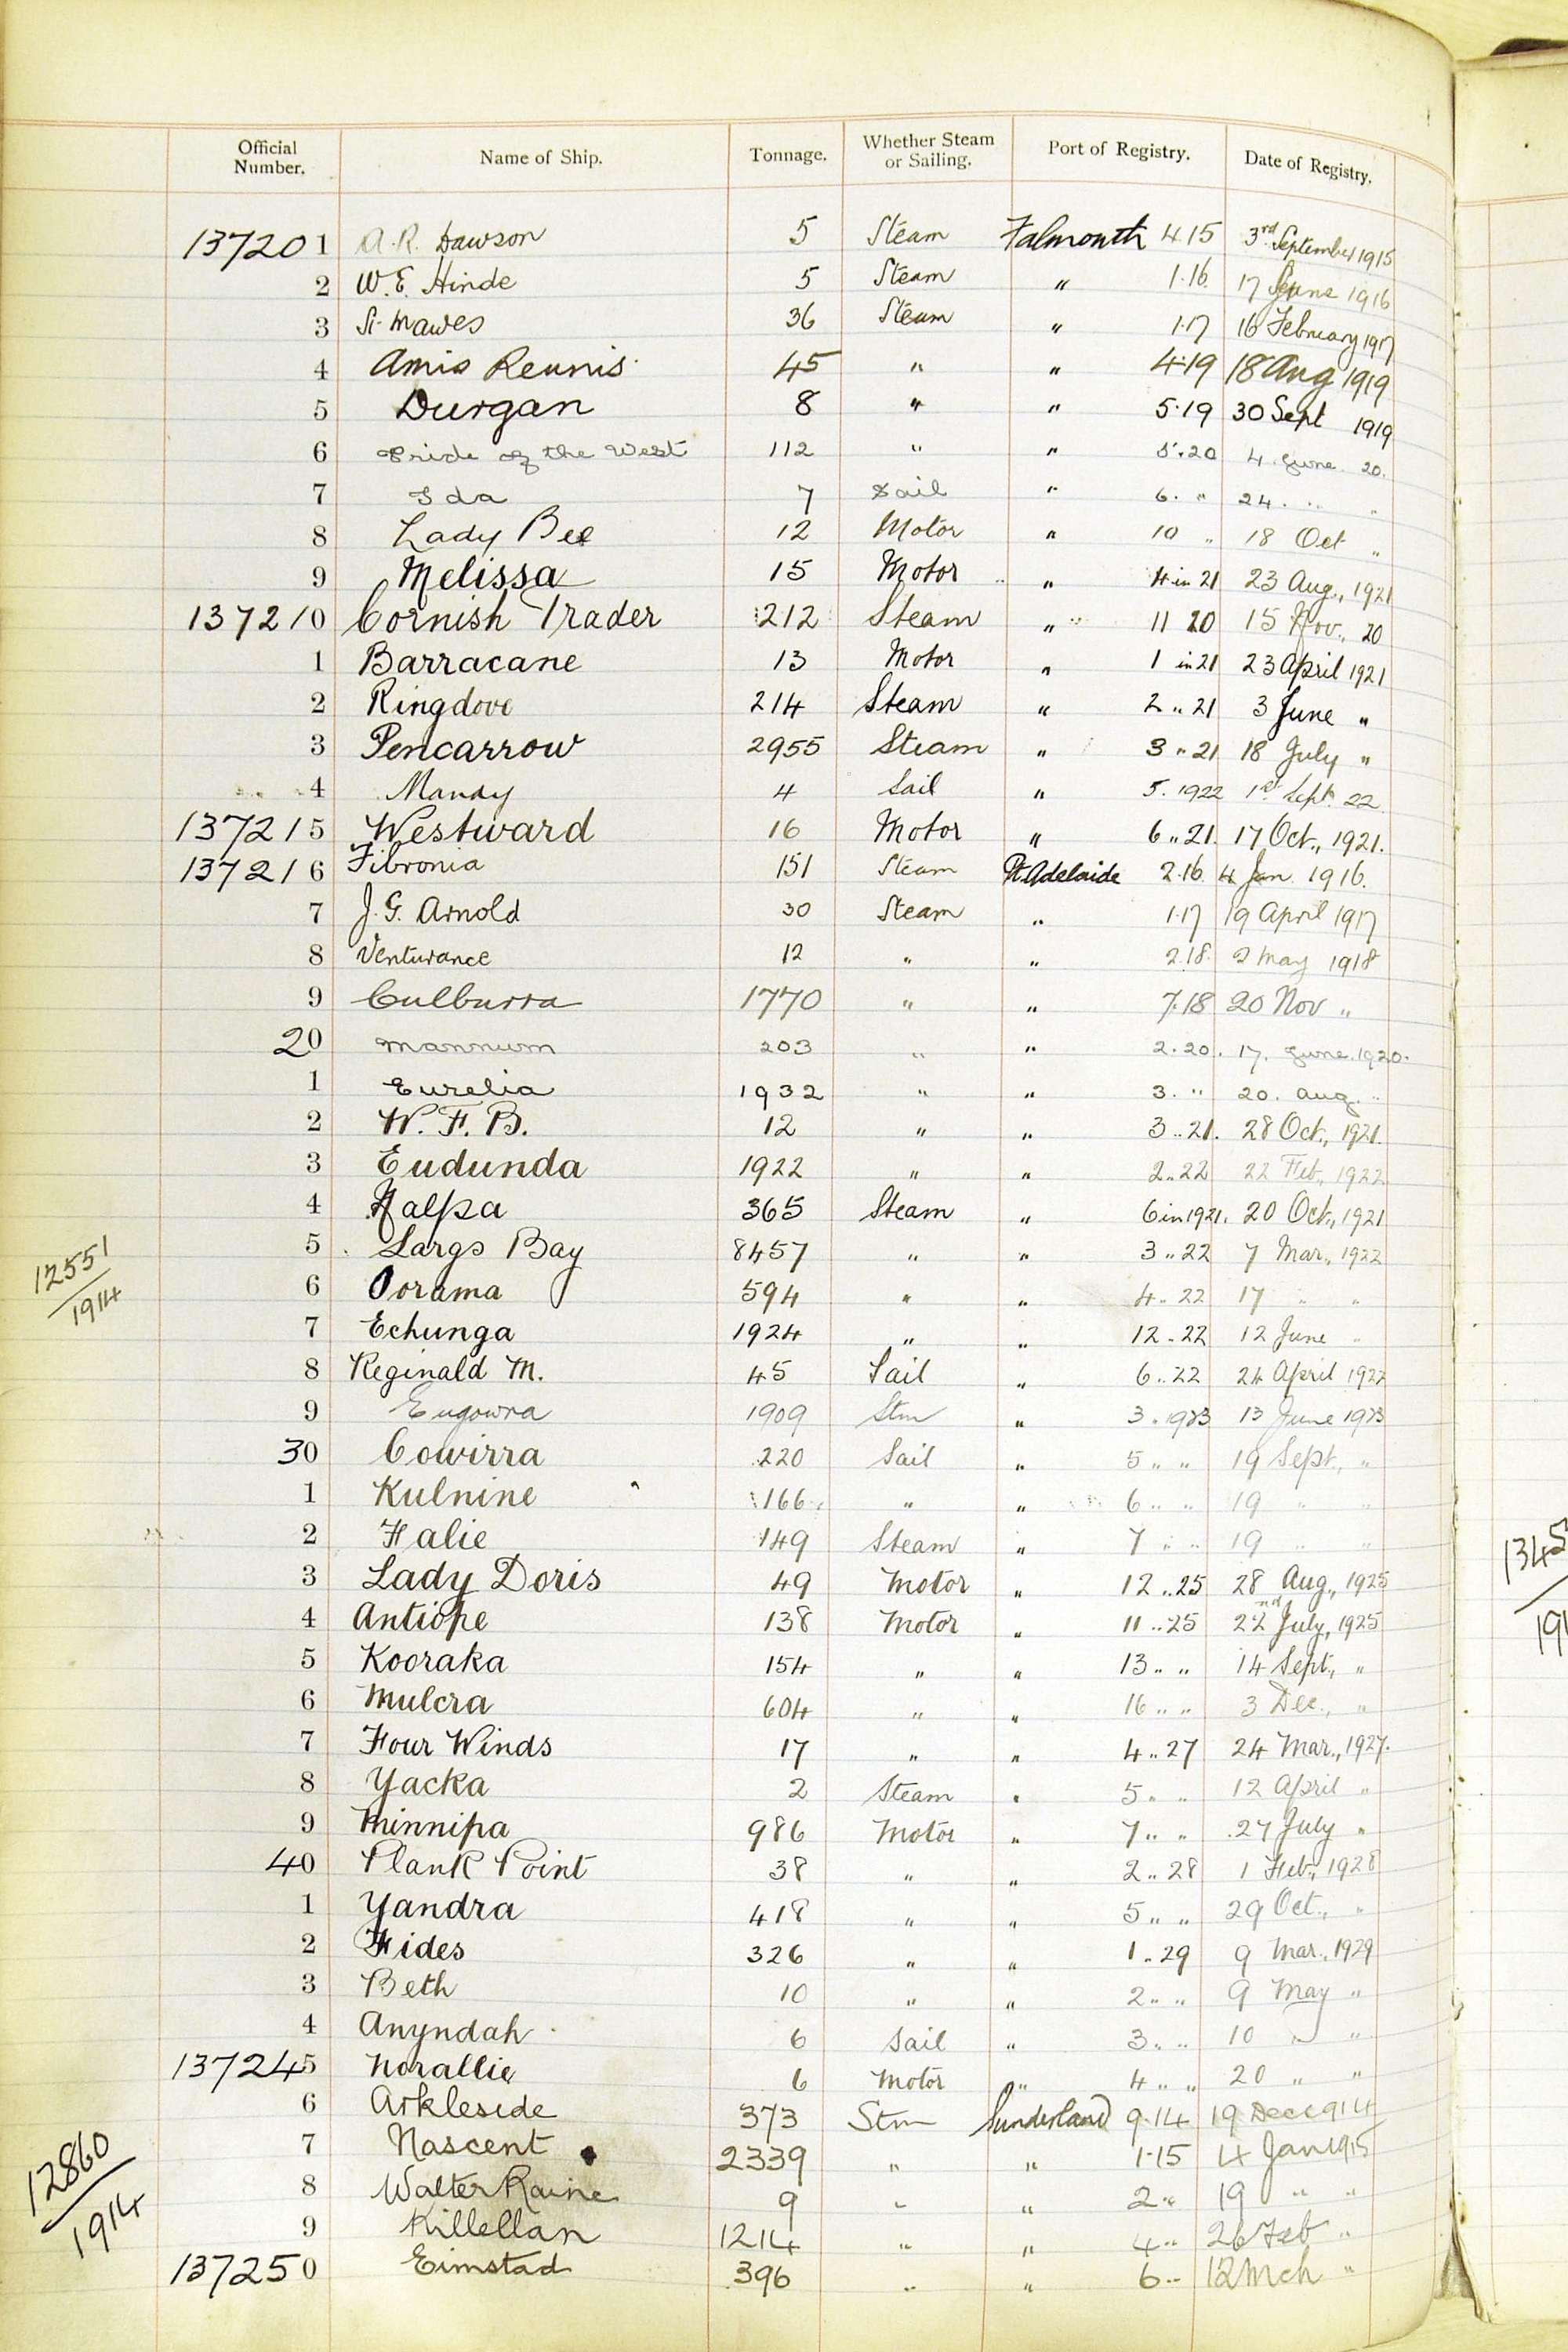 Official Number. Name of Ship. Tonnage. Whether Steam or Sailing. Port of Registry. Date of Registry.
137201 A.R. Dawson 5 Steam Falmouth 4.15 3rd September 1915
2 W.E. Hinde 5 Steam " 1.16. 17 June 1916
3 St Mawes 36 Steam " 1.17 16 February 1917
4 Amis Reunis 45 " " 4.19 18 Aug 1919
5 Durgan 8 " " 5.19 30 Sept 1919
6 Pride of the West 112 " " 5.20 4. June. 20.
7 Ida 7 Sail " 6. " 24. " "
8 Lady Bee 12 Motor " 10 " 18 Oct "
9 Melissa 15 Motor " 4 in 21 23 Aug., 1921
137210 Cornish Trader 212 Steam " 11 20 15 Nov., 20
1 Barracane 13 Motor " 1 in 21 23 April 1921
2 Ringdove 214 Steam " 2 " 21 3 June "
3 Pencarrow 2955 Steam " 3 " 21 18 July "
4 Mandy 4 Sail " 5. 1922 1st Sept. 22
137215 Westward 16 Motor " 6 " 21. 17 Oct., 1921.
137216 Fibronia 151 Steam Pt Adelaide 2.16 4 Jan. 1916.
7 J.G. Arnold 30 Steam " 1.17 19 April 1917
8 Venturance 12 " " 2.18. 2 May 1918
9 Culburra 1770 " " 7.18 20 Nov "
20 Mannum 203 " " 2.20. 17. June. 1920.
1 Eurelia 1932 " " 3. " 20. Aug. "
2 W. F. B. 12 " " 3 " 21. 28 Oct., 1921.
3 Eudunda 1922 " " 2 " 22 22 Feb., 1922
4 Nalpa 365 Steam " 6 in 1921. 20 Oct., 1921
5 Largs Bay 8457 " " 3 " 22 7 Mar., 1922
12551/1914
6 Oorama 594 " " 4 " 22 17 " "
7 Echunga 1924 " " 12 " 22 12 June "
8 Reginald M. 45 Sail " 6 " 22 24 April 1922
9 Eugowra 1909 Stm " 3 " 1923 13 June 1923
30 Cowirra 220 Sail " 5 " " 19 Sept., "
1 Kulnine 166 " " 6 " " 19 " "
2 Falie 149 Steam " 7 " " 19 " "
3 Lady Doris 49 Motor " 12 " 25 28 Aug., 1925
4 Antiope 138 Motor " 11 " 25 22nd July, 1925
5 Kooraka 154 " " 13 " " 14 Sept., "
6 Mulcra 604 " " 16 " " 3 Dec., "
7 Four Winds 17 " " 4 " 27 24 Mar., 1927.
8 Yacka 2 Steam " 5 " " 12 April "
9 Minnipa 986 Motor " 7 " " 27 July "
40 Plank Point 38 " " 2 " 28 1 Feb., 1928
1 Yandra 418 " " 5 " " 29 Oct., "
2 Fides 326 " " 1 " 29 9 Mar., 1929
3 Beth 10 " " 2 " " 9 May "
4 Anyndah 6 Sail " 3 " " 10 " "
137245 Norallie 6 Motor " 4 " " 20 " "
6 Arkleside 373 Stm Sunderland 9.14 19 Dec 1914
7 Nascent 2339 " " 1.15 4 Jan 1915
12860/1914
8 Walter Raine 9 " " 2 " 19 " "
9 Killellan 1214 " " 4 " 26 Feb "
137250 Eimstad 396 " " 6 " 12 Mch "